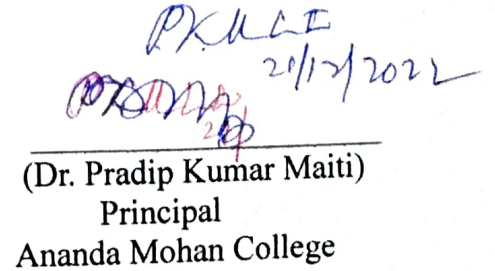 21/12/2022
(Dr. Pradip Kumar Maiti)
Principal
Ananda Mohan College